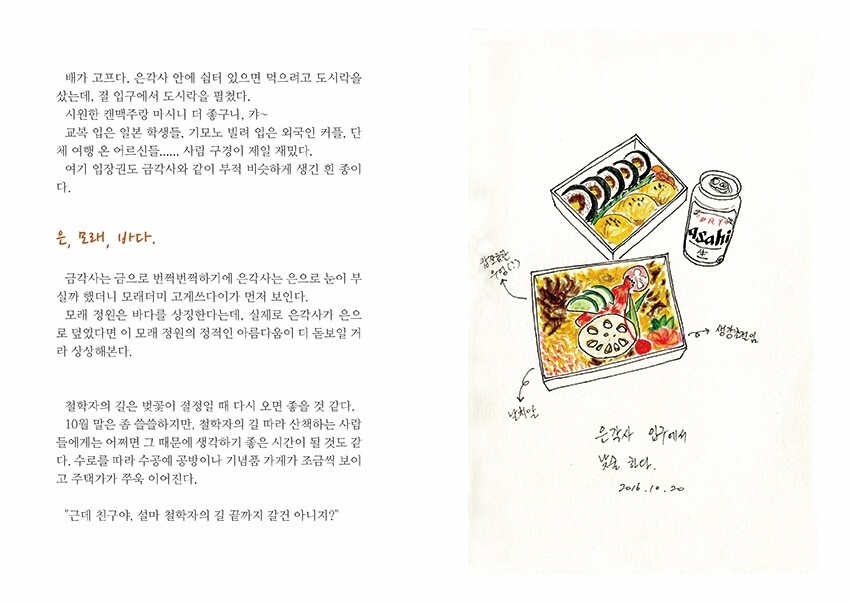 배가 고프다. 은각사 안에 쉼터 있으면 먹으려고 도시락을
샀는데, 절 입구에서 도시락을 펼쳤다.
시원한 캔맥주랑 마시니 더 좋구나, 캬~
교복 입은 일본 학생들, 기모노 빌려 입은 외국인 커플, 단
체 여행 온 어르신들...... 사람 구경이 제일 재밌다.
여기 입장권도 금각사와 같이 부적 비슷하게 생긴 흰 종이
다.
은, 모래, 바다.
금각사는 금으로 번쩍번쩍하기에 은각사는 은으로 눈이 부
실까 했더니 모래더미 고게쓰다이가 먼저 보인다.
모래 정원은 바다를 상징한다는데, 실제로 은각사가 은으
로 덮였다면 이 모래 정원의 정적인 아름다움이 더 돋보일 거
라 상상해본다.
철학자의 길은 벚꽃이 절정일 때 다시 오면 좋을 것 같다.
10월 말은 좀 쓸쓸하지만, 철학자의 길 따라 산책하는 사람
들에게는 어쩌면 그 때문에 생각하기 좋은 시간이 될 것도 같
다. 수로를 따라 수공예 공방이나 기념품 가게가 조금씩 보이
고 주택가가 쭈욱 이어진다.
"근데 친구야, 설마 철학자의 길 끝까지 갈건 아니지?"
DRY
Asahi
生
우엉(?)
생강절임
날치알
은각사 입구에서
낮술 하다.
2016.10.20